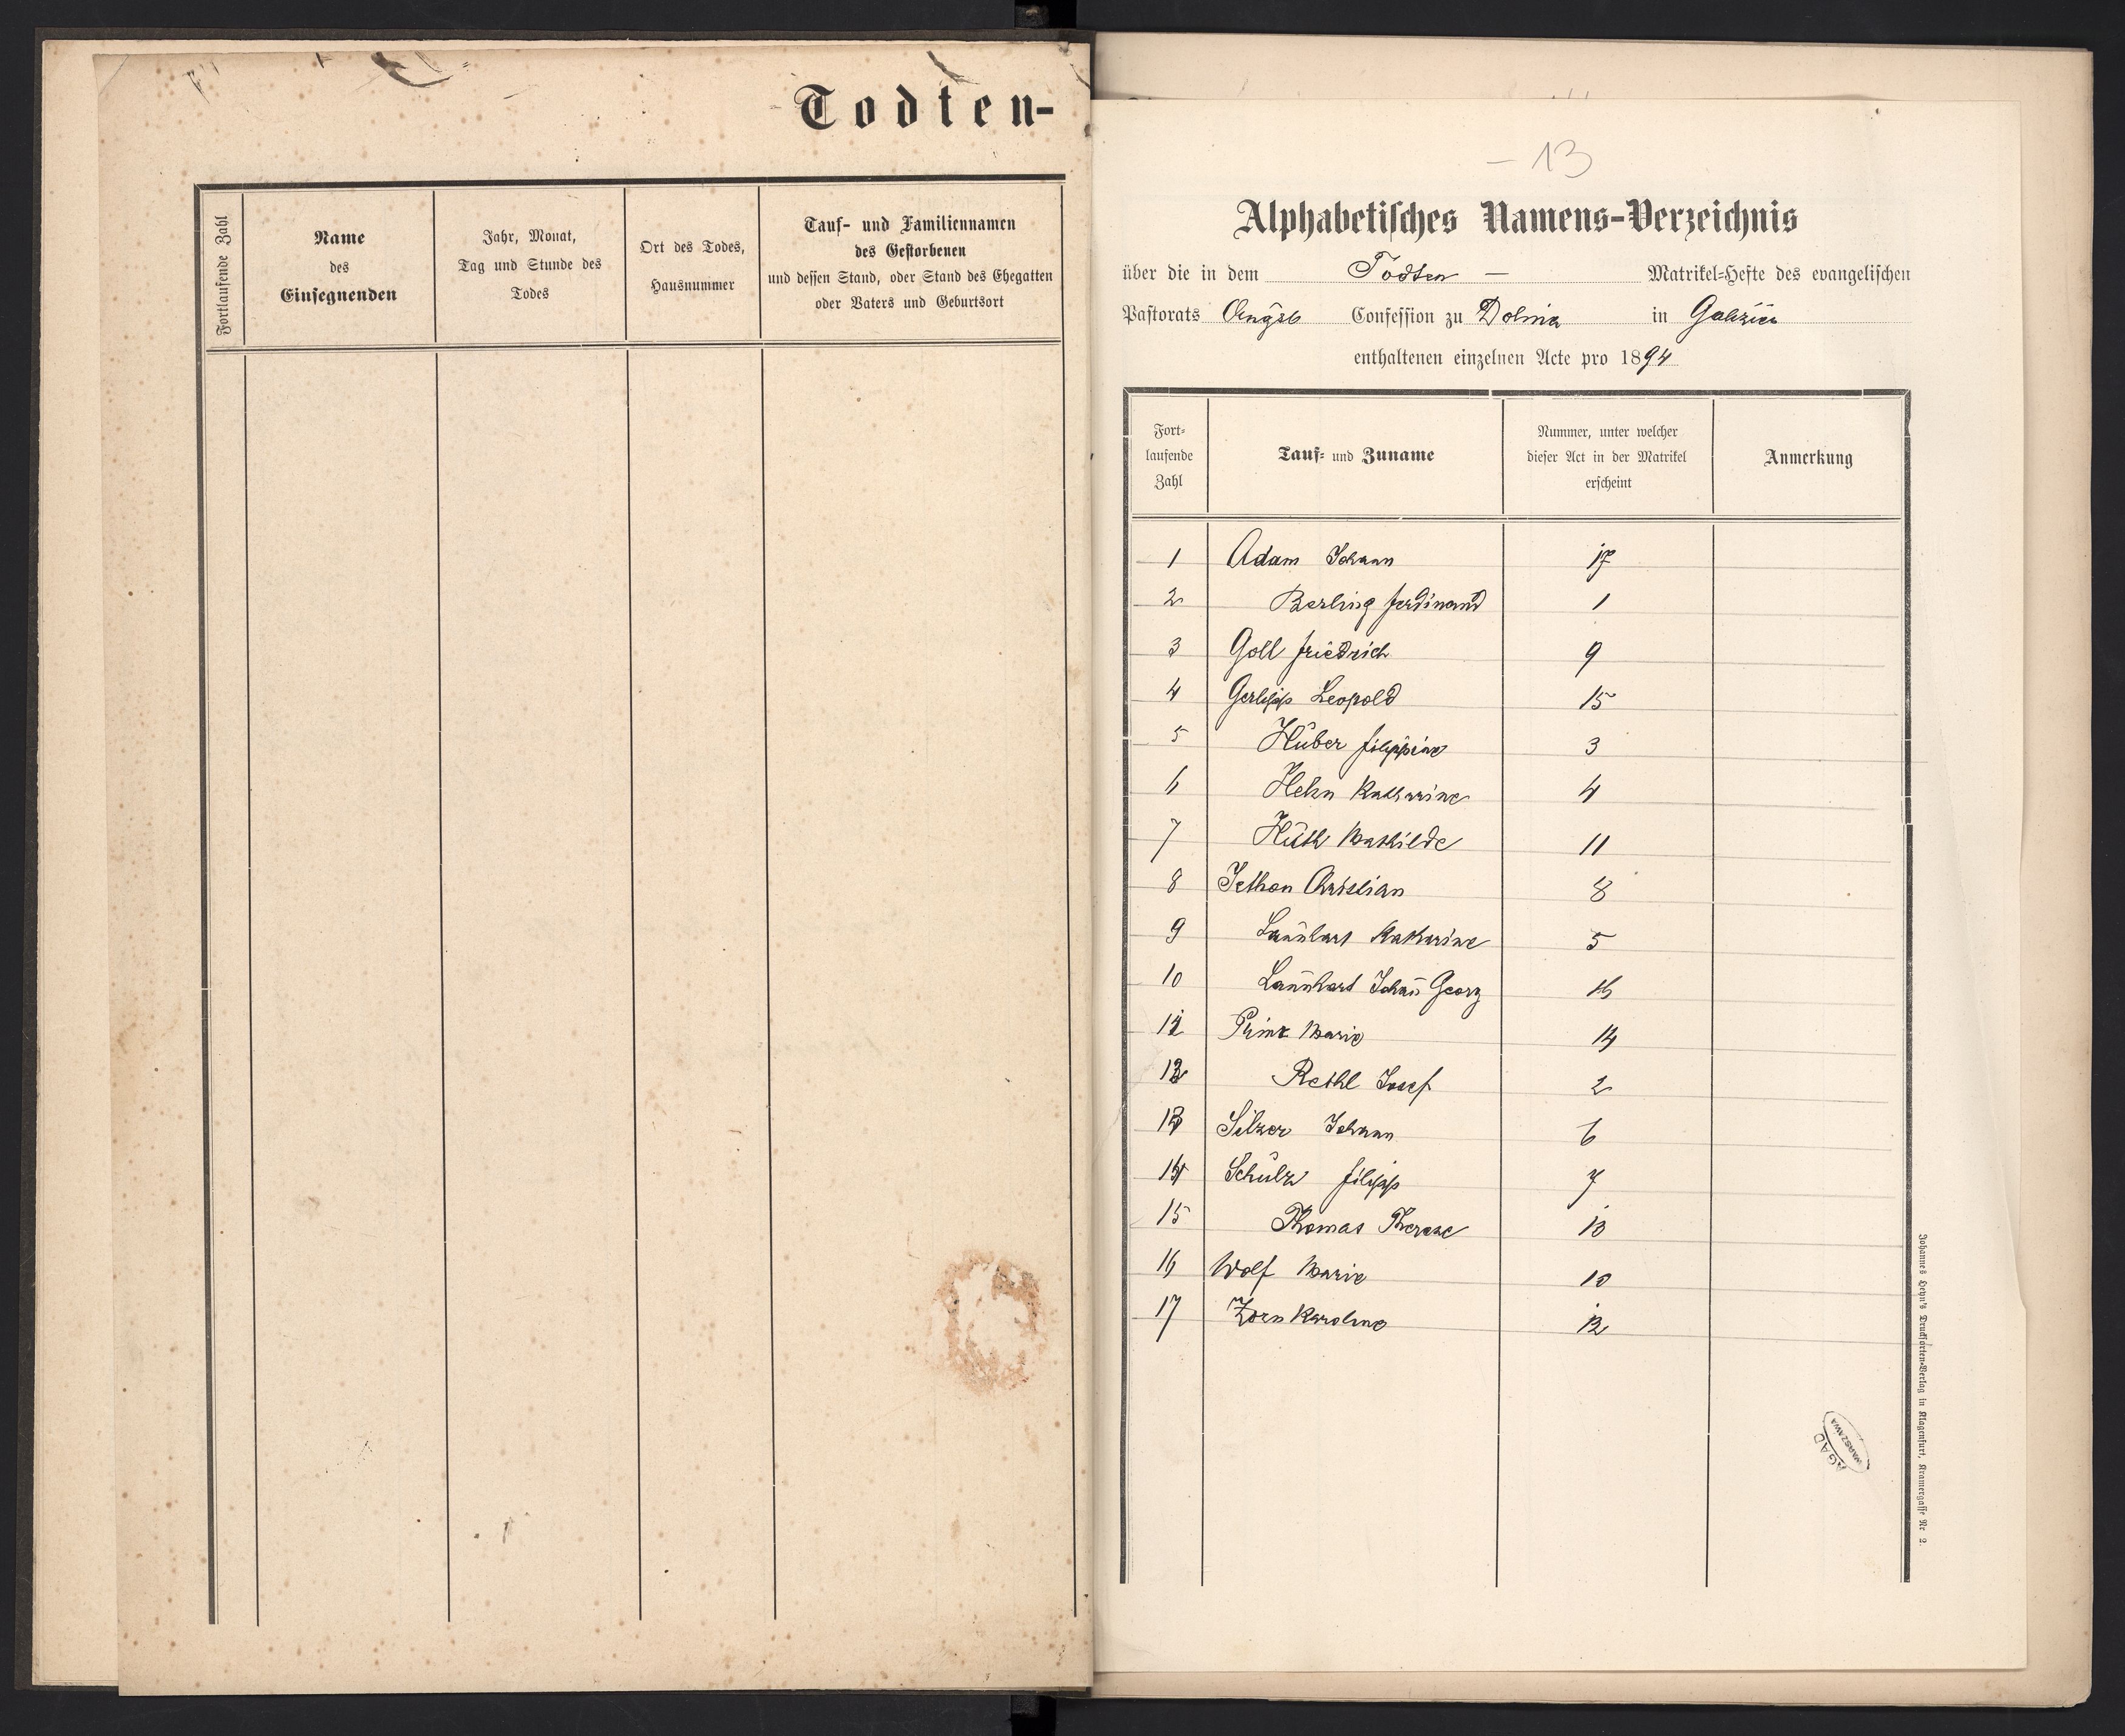 Todten-
Fortlaufende Zahl
Name
des
Einsegnenden
Jahr, Monat,
Tag und Stunde des
Todes
Ort des Todes,
Hausnummer
Tauf- und Familiennamen
des Gestorbenen
und dessen Stand, oder Stand des Ehegatten
oder Vaters und Geburtsort
- 13
Alphabetisches Namens-Verzeichnis
über die in dem Todten — Matrikel-Hefte des evangelischen
Pastorats Augsb Confession zu Dolina in Galizien
enthaltenen einzelnen Acte pro 1894
Fort-
laufende
Zahl
Tauf- und Zuname
Nummer, unter welcher
dieser Act in der Matrikel
erscheint
Anmerkung
1 Adam Johann 17
2 Berling Ferdinand 1
3 Goll Friedrich 9
4 Leopold 15
5 Huber Filippine 3
6 Hehn Katharine 4
7 Huth Mathilde 11
8 Jethon Christian 8
9 Launhart Katharine 5
10 Launhart Johann Georg 16
11 Prinz Marie 14
12 Rethl Josef 2
13 Silzer Johann 6
14 Schulz Filipp 7
15 Thomas Therese 13
16 Wolf Marie 10
17 Zorn Karoline 12
AGAD
WARSZAWA
Johannes Heyn's Drucksorten-Verlag in Klagenfurt, Kramergasse Nr 2.